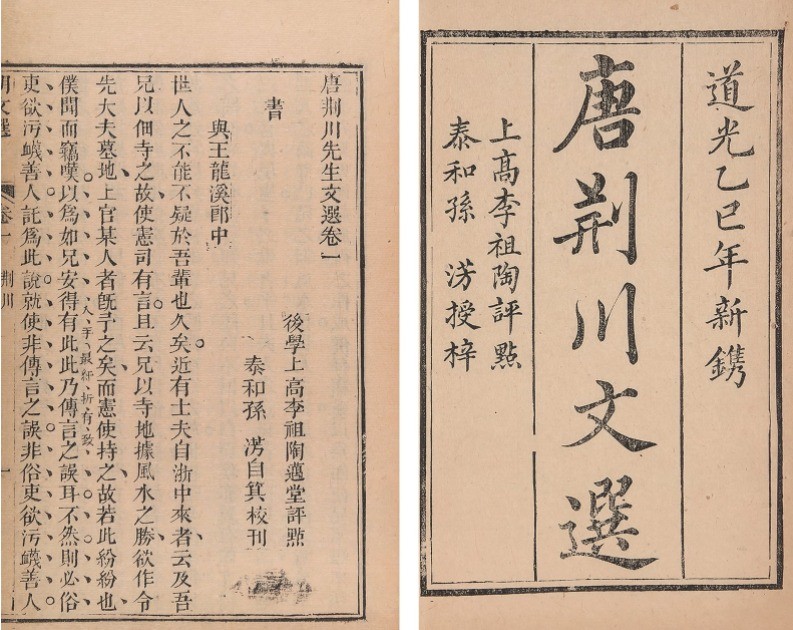 道光乙巳年新鐫
唐荆川文選
上高李祖陶評點
泰和孫 淓授梓
唐荆川先生文選卷一
後學上高李祖陶邁堂評點
泰和孫 淓自箕校刊
書
與王龍溪郎中
世人之不能不疑於吾輩也久矣近有士夫自浙中來者云及吾
兄以佃寺之故使憲司有言且云兄以寺地據風水之勝欲作令
先大夫墓地上官某人者旣予之矣而憲使持之故若此紛紛也
入手最紆折有致
僕聞而竊嘆以爲如兄安得有此此乃傳言之誤耳不然則必俗
吏欲污衊善人託爲此說就使非傳言之誤非俗吏欲污衊善人
文選 卷一 荆川 一